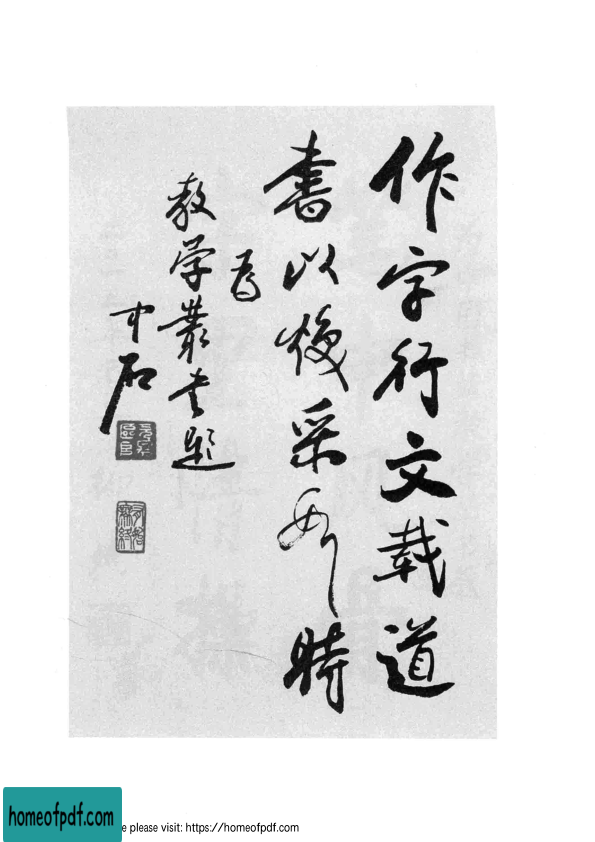 作字行文载道
書以焕采時
為
教学叢书題
中石
homeofpdf.com
e please visit: https://homeofpdf.com